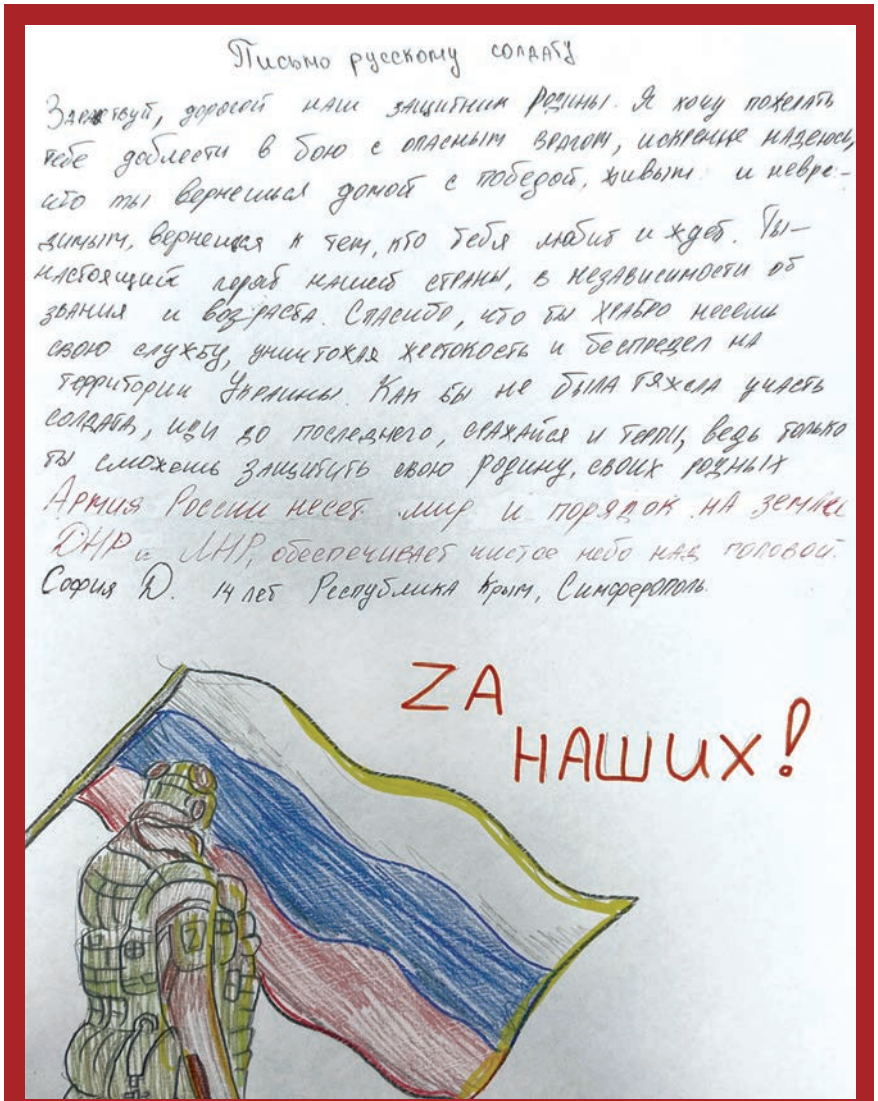 Письмо русскому солдату
Здравствуй, дорогой наш защитник Родины. Я хочу пожелать
тебе доблести в бою с опасным врагом, искренне надеюсь,
что ты вернешься домой с победой, живым и невре-
димым, вернешься к тем, кто тебя любит и ждет. Ты-
настоящий герой нашей страны, в независимости от
звания и возраста. Спасибо, что ты храбро несешь
свою службу, уничтожая жестокость и беспредел на
территории Украины. Как бы не была тяжела участь
солдата, иди до последнего, сражайся и терпи, ведь только
ты сможешь защитить свою родину, своих родных
Армия России несет мир и порядок на земли
ДНР и ЛНР, обеспечивает чистое небо над головой.
София D. 14 лет Республика Крым, Симферополь.
ZA
НАШИХ!
Z